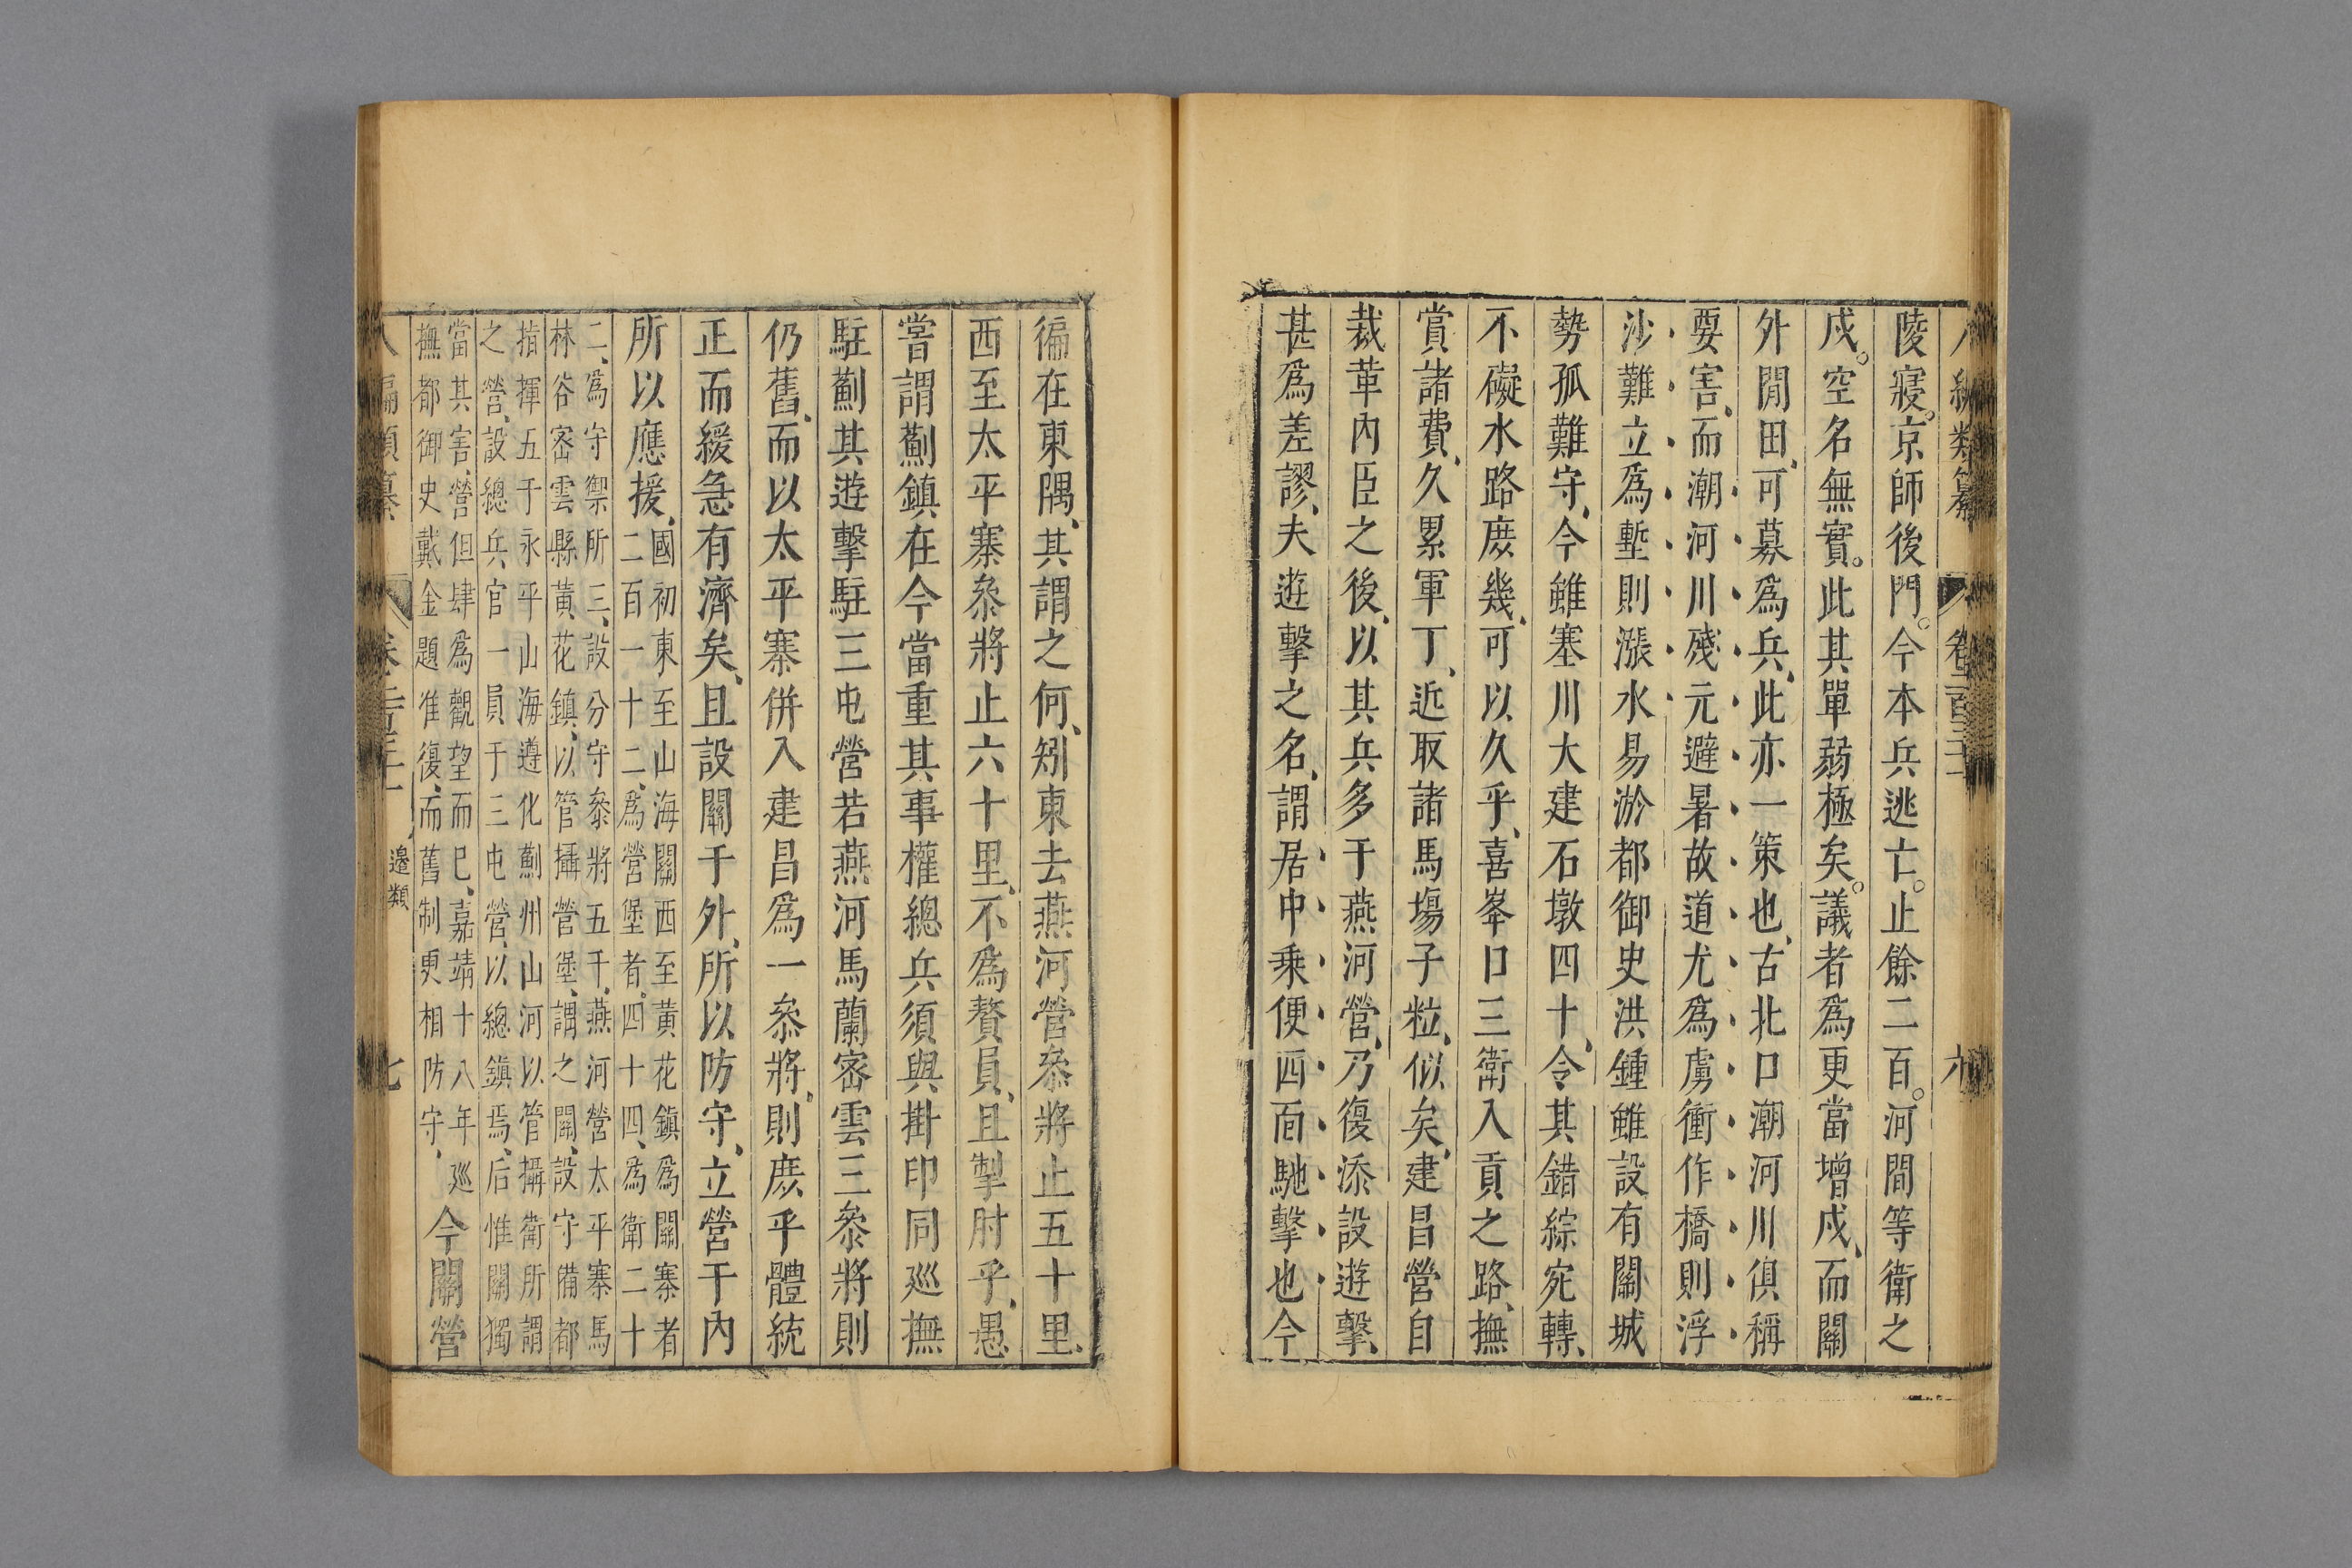 陵寢。京師後門。今本兵逃亡。止餘二百。河間等衛之
戍。空名無實。此其單弱極矣。議者爲更當增戍、而關
外閒田、可募爲兵、此亦一策也、古北口潮河川俱稱
要害、而潮河川殘元避暑故道尤爲虜衝作橋則浮
沙難立爲塹則漲水易淤都御史洪鍾雖設有關城
勢孤難守、今雖塞川大建石墩四十、令其錯綜宛轉、
不礙水路庶幾、可以久乎、喜峯口三衛入貢之路、撫
賞諸費、久累軍丁、近取諸馬塲子粒、似矣、建昌營自
裁革內臣之後、以其兵多于燕河營、乃復添設遊擊、
甚爲差謬、夫遊擊之名、謂居中乗便四面馳擊也今
徧在東隅、其謂之何、矧東去燕河營叅將止五十里、
西至太平寨叅將止六十里、不爲贅員、且掣肘乎、愚
嘗謂薊鎮在今當重其事權總兵須與掛印同廵撫
駐薊其遊擊駐三屯營若燕河馬蘭密雲三叅將則
仍舊、而以太平寨併入建昌爲一叅將、則庶乎體統
正而緩急有濟矣、且設關于外、所以防守、立營于內
所以應援、國初東至山海關西至黃花鎮爲關寨者
二百一十二、爲營堡者、四十四、爲衛二十
二、爲守禦所三、設分守叅將五于、燕河營太平寨馬
林谷密雲縣黃花鎮、以管攝營堡、謂之關、設守備都
指揮五于永平山海遵化薊州山河以管攝衛所謂
之營、設總兵官一員于三屯營、以總鎮焉、后惟關獨
當其害、營但肆爲觀望而已、嘉靖十八年廵
撫都御史戴金題准復、而舊制更相防守、今關營
邊類
七